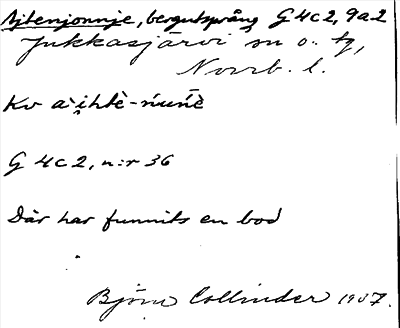 Ajtenjonnje, bergutsprång G 4c2, 9a2
Jukkasjärvi sn o. tg,
Norrb. l.
Kv
G 4c2, n:r 36
Där har funnits en bod
Björn Collinder 1937.